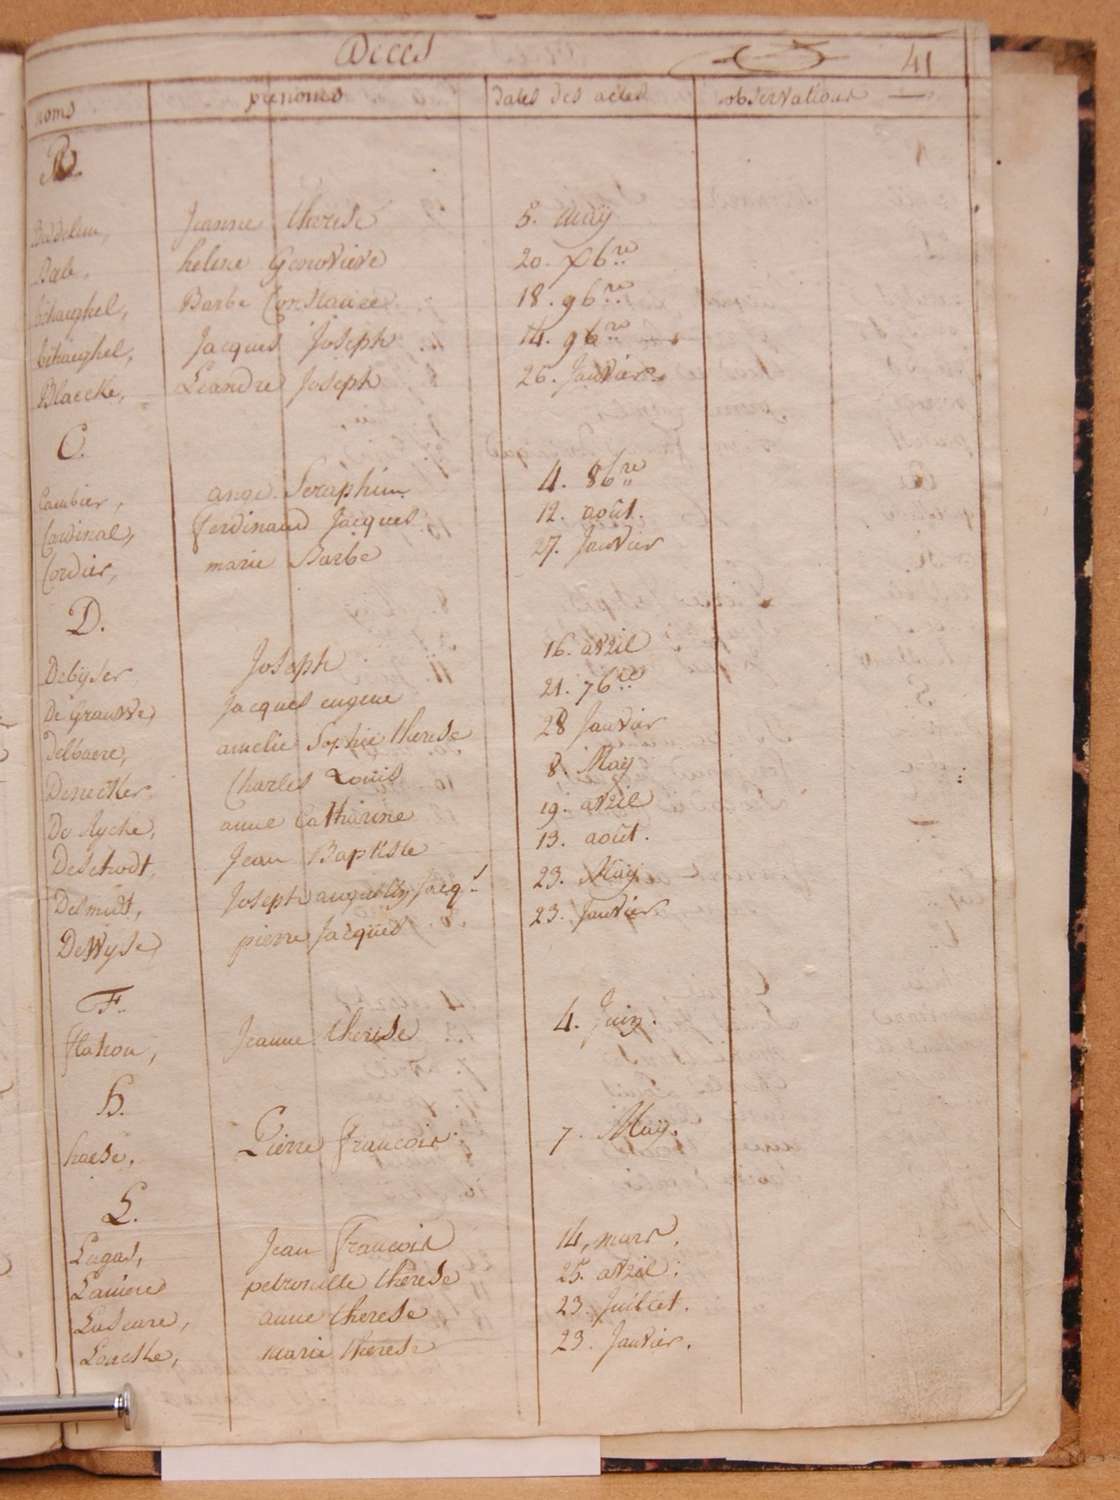 Décès 41
noms prenoms dates des actes observations
B.
Jeanne therese 5. may
Bele. heline Genovieve 20. Xb.re
béhaeghel, Barbe Constance 18. 9b.re
béhaeghel, Jacques Joseph 14. 9b.re
Blaecke, Léandre Joseph 26. Janvier.
C.
Cambier, ange Seraphim 4. 8b.re
Cardinael, ferdinand Jacques 12. août.
Cordier, marie Barbe 27. Janvier
D.
Debyser Joseph 16. avril
De Grauwe Jacques eugene 21. 7b.re
Delbaere, amelie Sophie therese 28 Janvier
Denecker Charles Louis 8. May
De Rycke, anne Catharine 19. avril
Deschodt, Jean Baptiste 13. août.
Desmidt, Joseph augustin Jacq.s 23. May
De Wyse pierre Jacques 23. Janvier.
F.
flahou, Jeanne therese 4. Juin.
H.
haese. Pierre francois 7. May.
L.
Lagas, Jean francois 14, mars.
petronille therese 25. avril.
anne therese 23. Juillet.
marie therese 23. Janvier.